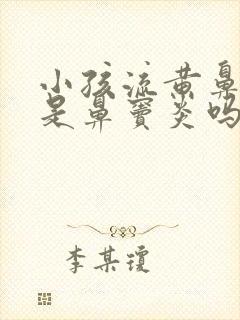 小孩流黄鼻
是鼻窦炎吗
李某琼